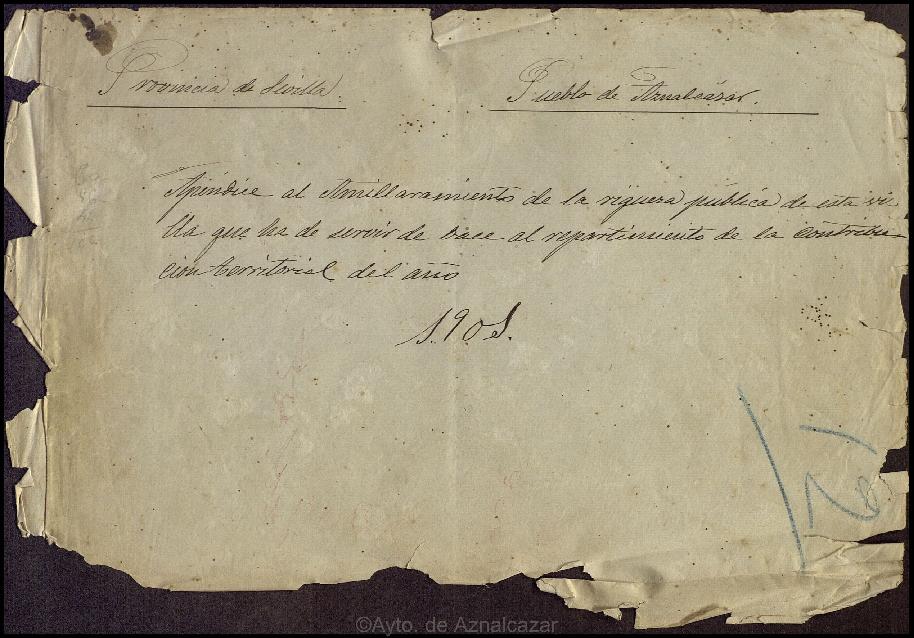 Provincia de Sevilla.
Pueblo de Aznalcázar.
Apéndice al Amillaramiento de la riqueza pública de esta vi-
lla que ha de servir de base al repartimiento de la contribu-
cion territorial del año
1901.
©Ayto. de Aznalcazar